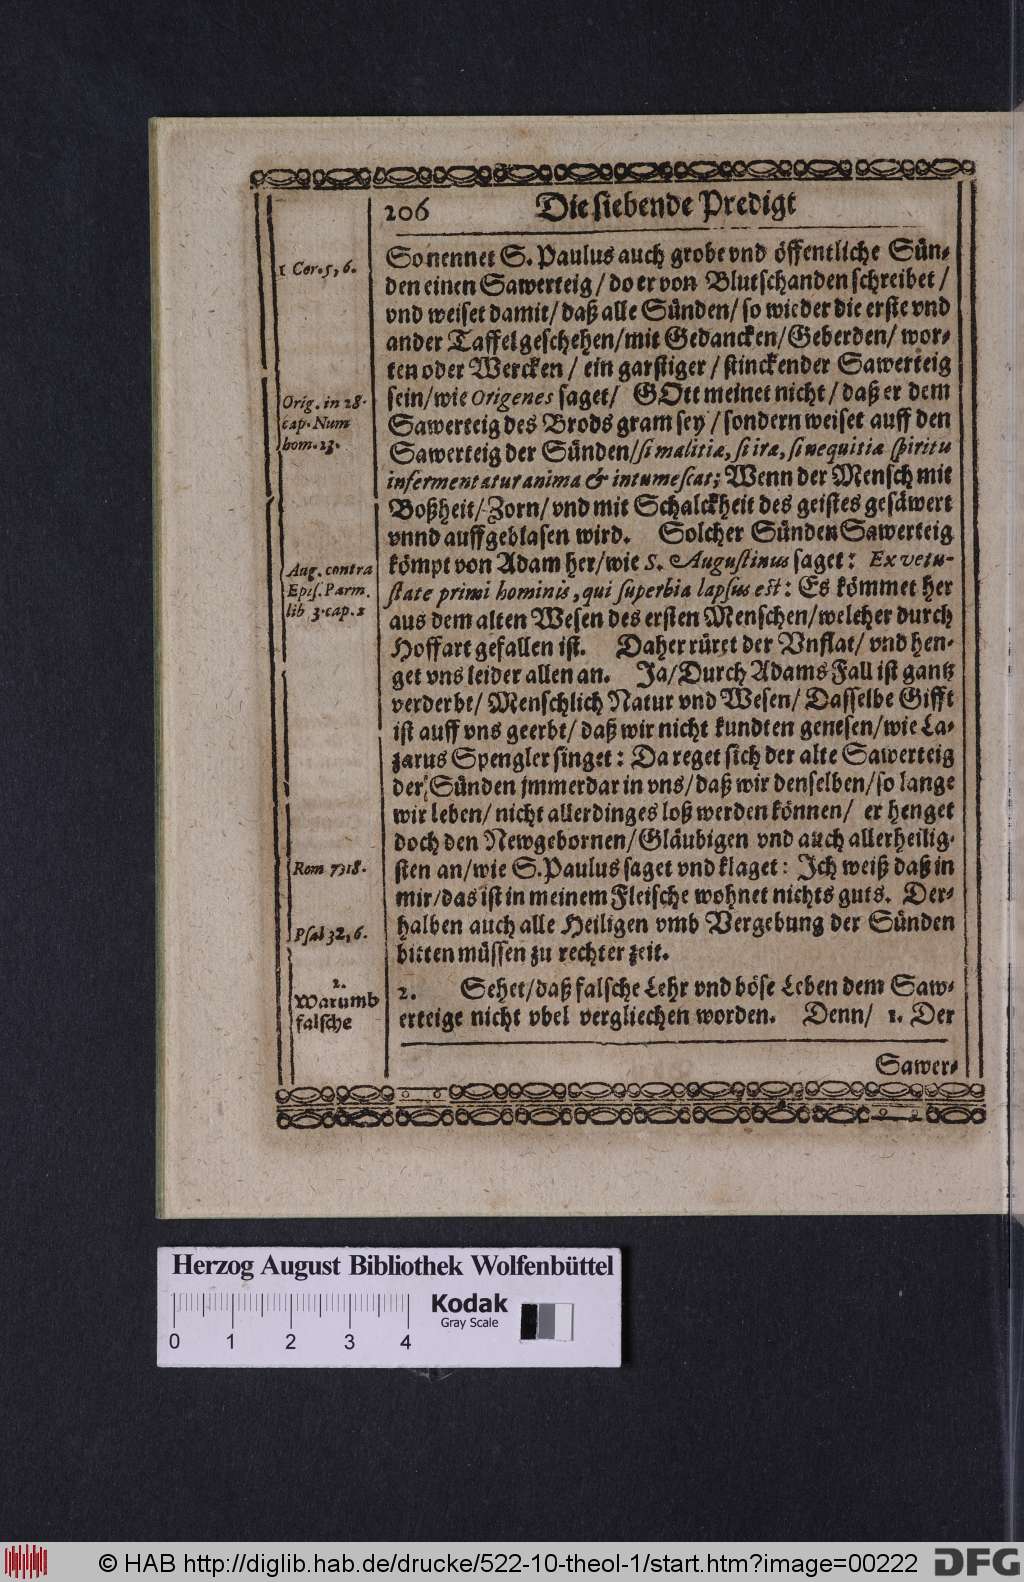 206 Die siebende Predigt
1 Cor. 5, 6.
So nennet S. Paulus auch grobe vnd öffentliche Sün-
den einen Sawerteig / do er von Blutschanden schreibet /
vnd weiset damit / daß alle Sünden / so wieder die erste vnd
ander Taffel geschehen / mit Gedancken / Geberden / wor-
ten oder Wercken / ein garstiger / stinckender Sawerteig
Orig. in 28.
cap. Num
hom. 23.
sein / wie Origenes saget / GOtt meinet nicht / daß er dem
Sawerteig des Brods gram sey / sondern weiset auff den
Sawerteig der Sünden / si malitiæ, si iræ, si nequitiæ spiritu
infermentatur anima & intumescat; Wenn der Mensch mit
Boßheit / Zorn / vnd mit Schalckheit des geistes gesäwert
vnnd auffgeblasen wird. Solcher Sünden Sawerteig
Aug. contra
Epis. Parm.
lib 3. cap. 2
kömpt von Adam her / wie S. Augustinus saget: Ex vetu-
state primi hominis, qui superbia lapsus est: Es kömmet her
aus dem alten Wesen des ersten Menschen / welcher durch
Hoffart gefallen ist. Daher rüret der Vnflat / vnd hen-
get vns leider allen an. Ja / Durch Adams Fall ist gantz
verderbt / Menschlich Natur vnd Wesen / Dasselbe Gifft
ist auff vns geerbt / daß wir nicht kundten genesen / wie La-
zarus Spengler singet: Da reget sich der alte Sawerteig
der Sünden jmmerdar in vns / daß wir denselben / so lange
wir leben / nicht allerdinges loß werden können / er henget
doch den Newgebornen / Gläubigen vnd auch allerheilig-
Rom 7, 18.
sten an / wie S. Paulus saget vnd klaget: Ich weiß daß in
mir / das ist in meinem Fleische wohnet nichts guts. Der-
Psal 32, 6.
halben auch alle Heiligen vmb Vergebung der Sünden
bitten müssen zu rechter zeit.
2.
Warumb
falsche
2. Sehet / daß falsche Lehr vnd böse Leben dem Saw-
erteige nicht vbel vergliechen worden. Denn / 1. Der
Sawer-
Herzog August Bibliothek Wolfenbüttel
Kodak
Gray Scale
0 1 2 3 4
© HAB http://diglib.hab.de/drucke/522-10-theol-1/start.htm?image=00222
DFG